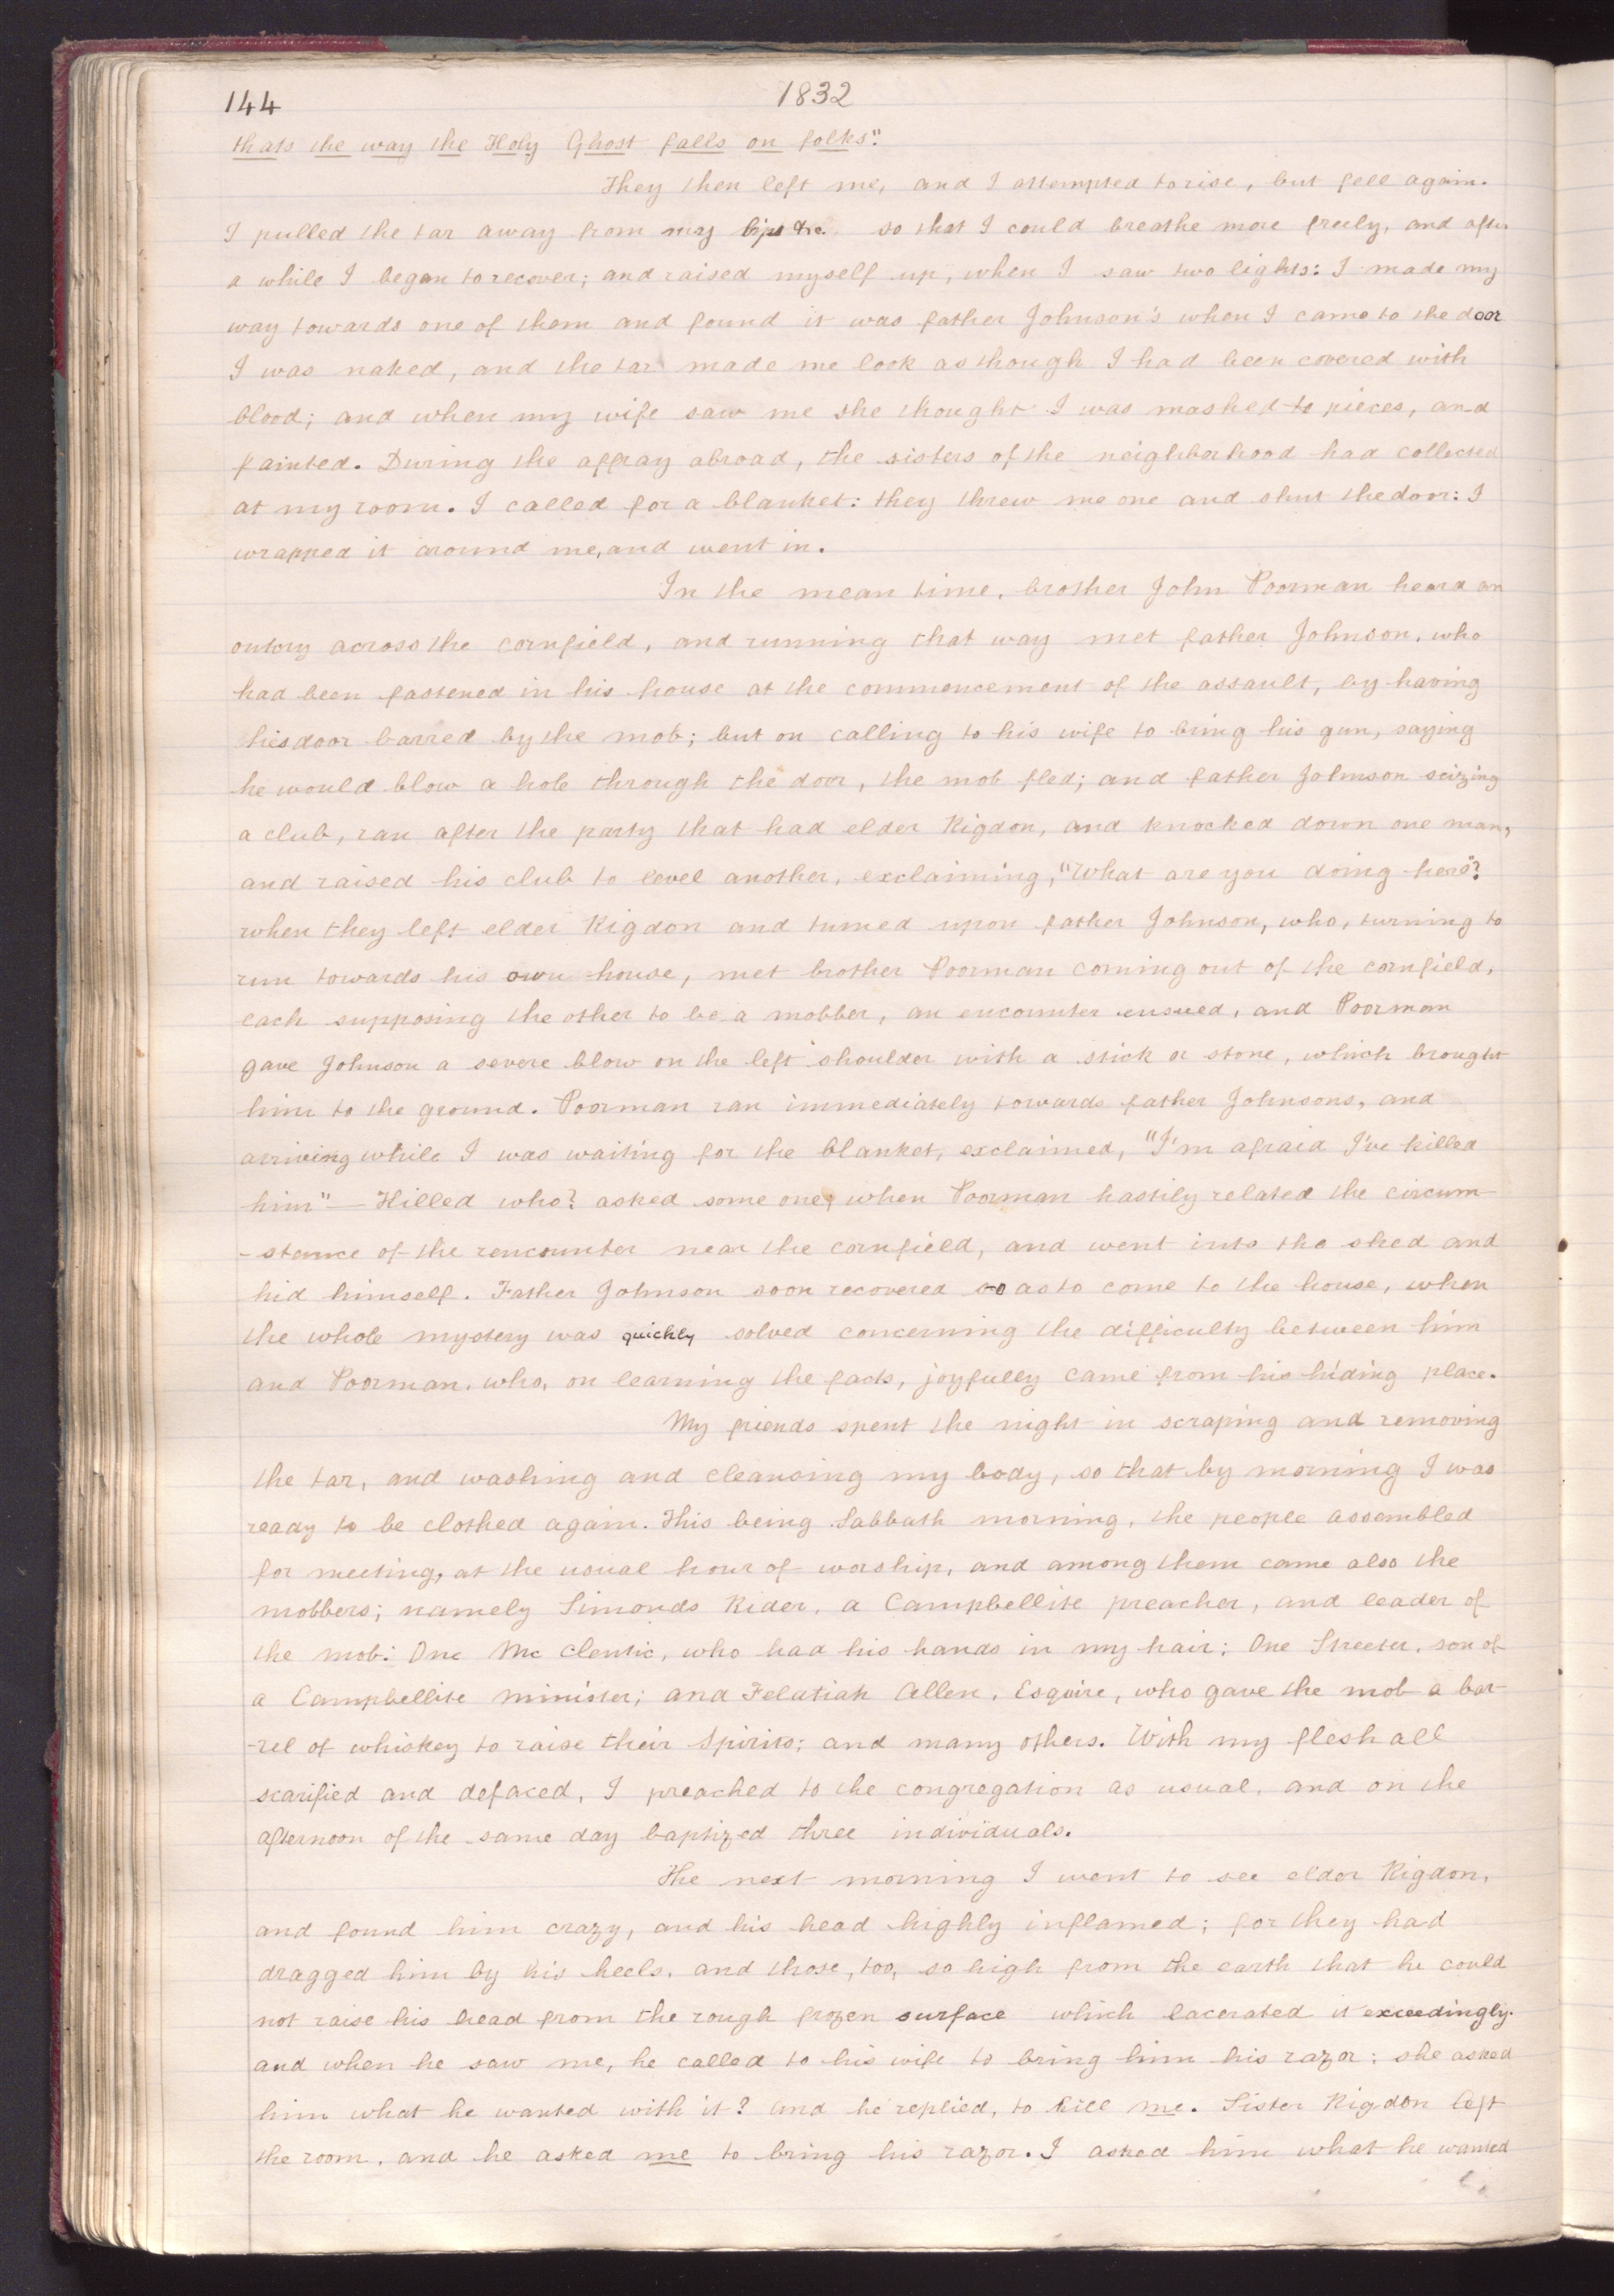 144
1832
thats the way the Holy Ghost falls on folks".
They then left me, and I attempted to rise, but fell again.
I pulled the tar away from my lips &c. so that I could breathe more freely, and after
a while I began to recover; and raised myself up, when I saw two lights: I made my
way towards one of them and found it was father Johnson's when I came to the door
I was naked, and the tar made me look as though I had been covered with
blood; and when my wife saw me she thought I was mashed to pieces, and
fainted. During the affray abroad, the sisters of the neighborhood had collected
at my room. I called for a blanket: they threw me one and shut the door: I
wrapped it around me, and went in.
In the mean time, brother John Poorman heard an
outcry across the cornfield, and running that way met father Johnson, who
had been fastened in his house at the commencement of the assault, by having
his door barred by the mob; but on calling to his wife to bring his gun, saying
he would blow a hole through the door, the mob fled; and father Johnson seizing
a club, ran after the party that had elder Rigdon, and knocked down one man,
and raised his club to level another, exclaiming, "What are you doing here"?
when they left elder Rigdon and turned upon father Johnson, who, turning to
run towards his own house, met brother Poorman coming out of the cornfield,
each supposing the other to be a mobber, an encounter ensued, and Poorman
gave Johnson a severe blow on the left shoulder with a stick or stone, which brought
him to the ground. Poorman ran immediately towards father Johnsons, and
arriving while I was waiting for the blanket, exclaimed, "I'm afraid I've killed
him" — Killed who? asked some one; when Poorman hastily related the circum-
-stance of the rencounter near the cornfield, and went into the shed and
hid himself. Father Johnson soon recovered so as to come to the house, when
the whole mystery was quickly solved concerning the difficulty between him
and Poorman, who, on learning the facts, joyfully came from his hiding place.
My friends spent the night in scraping and removing
the tar, and washing and cleansing my body, so that by morning I was
ready to be clothed again. This being Sabbath morning, the people assembled
for meeting, at the usual hour of worship, and among them came also the
mobbers; namely Simonds Rider, a Campbellite preacher, and leader of
the mob: One Mc Clentic, who had his hands in my hair; One Streeter, son of
a Campbellite minister; and Felatiah Allen, Esquire, who gave the mob a bar-
-rel of whiskey to raise their Spirits; and many others. With my flesh all
scarified and defaced, I preached to the congregation as usual, and on the
afternoon of the same day baptized three individuals.
The next morning I went to see elder Rigdon,
and found him crazy, and his head highly inflamed; for they had
dragged him by his heels, and those, too, so high from the earth that he could
not raise his head from the rough frozen surface which lacerated it exceedingly.
and when he saw me, he called to his wife to bring him his razor: she asked
him what he wanted with it? and he replied, to kill me. Sister Rigdon left
the room, and he asked me to bring his razor. I asked him what he wanted